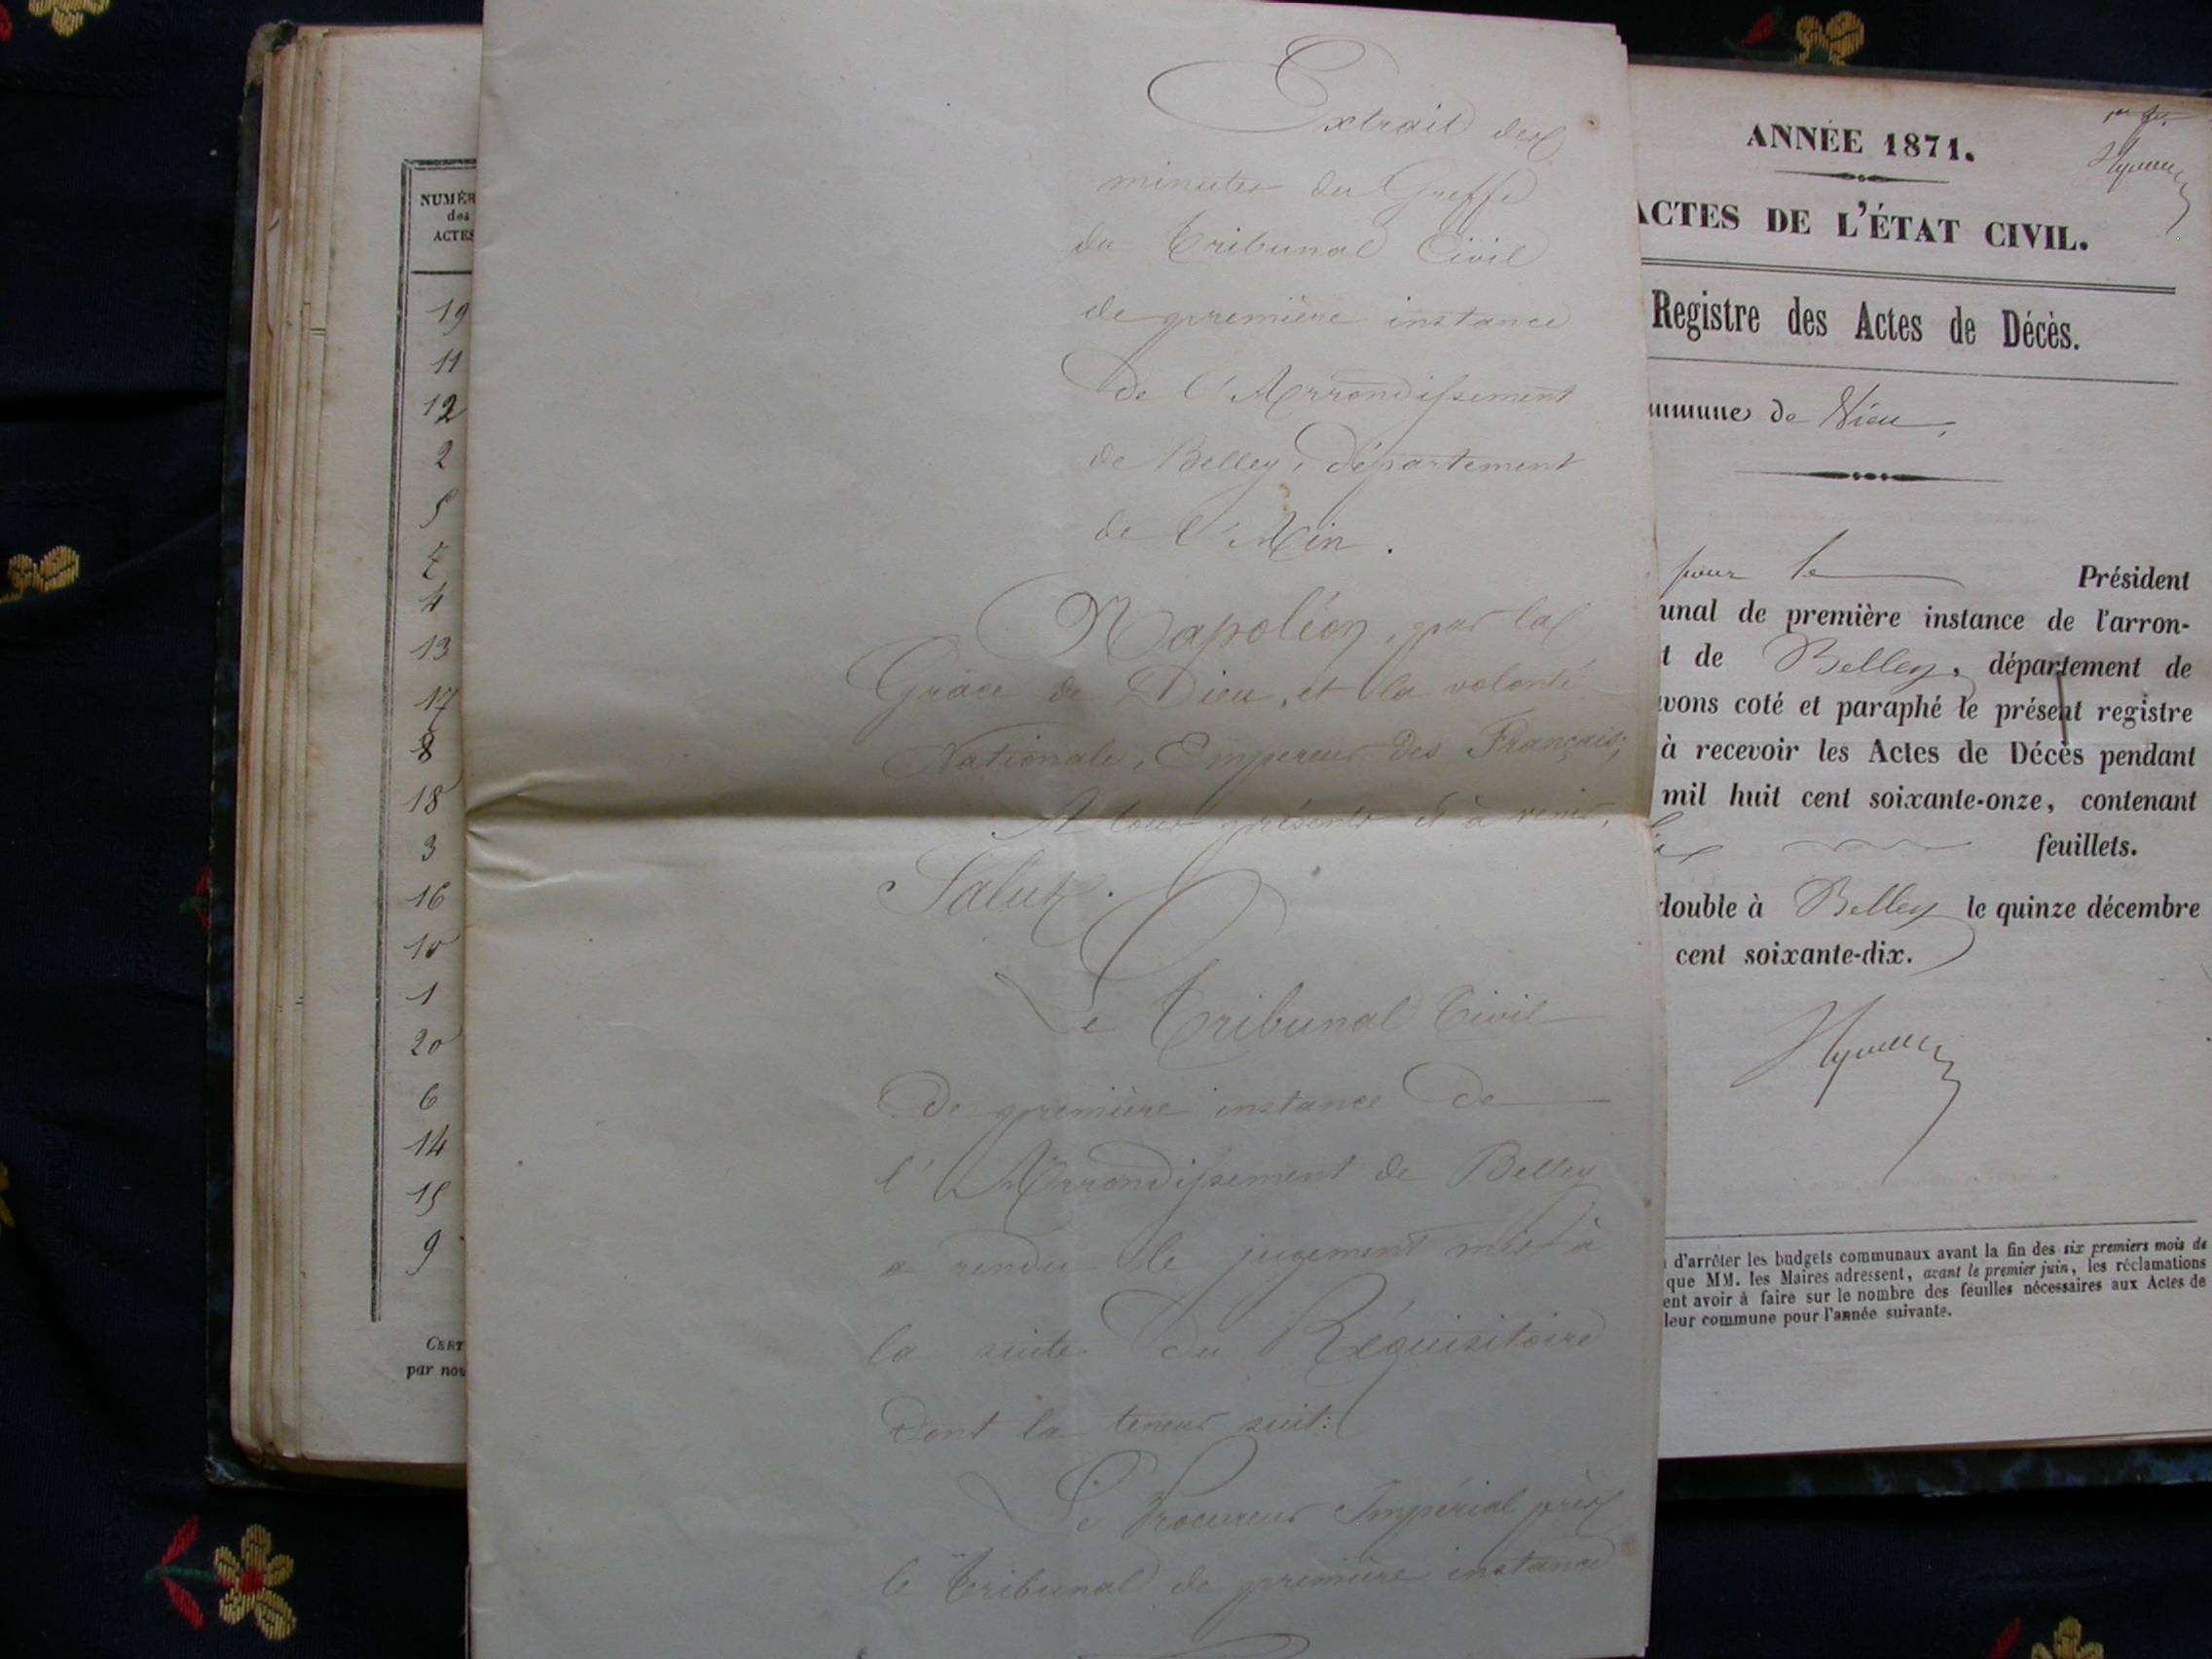 NUMÉR
des
ACTES
19
11
12
2
5
7
4
13
17
8
18
3
16
10
1
20
6
14
15
9
CERT
par nou
Extrait des
minutes du Greffe
du Tribunal Civil
de première instance
de l'Arrondissement
de Belley, département
de l'Ain.
Napoléon, par la
Grâce de Dieu, et la volonté
Nationale, Empereur des Français;
A tous présents et à venir,
Salut.
Le Tribunal Civil
De première instance de
l'Arrondissement de Belley
a rendu le jugement mis à
la suite du Réquisitoire
Dont la teneur suit:
Le Procureur Impérial près
le Tribunal de première instance
ANNÉE 1871.
ACTES DE L'ÉTAT CIVIL.
Registre des Actes de Décès.
mmune de Vieu,
pour le Président
unal de première instance de l'arron-
t de Belley, département de
vons coté et paraphé le présent registre
à recevoir les Actes de Décès pendant
mil huit cent soixante-onze, contenant
feuillets.
double à Belley le quinze décembre
cent soixante-dix.
d'arrêter les budgets communaux avant la fin des six premiers mois de
que MM. les Maires adressent, avant le premier juin, les réclamations
ent avoir à faire sur le nombre des feuilles nécessaires aux Actes de
leur commune pour l'année suivante.